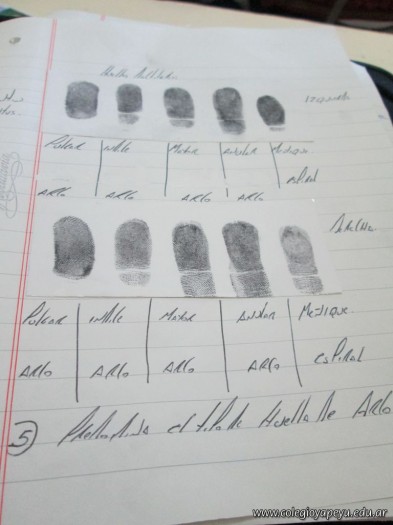 Huellas
izquierda
Pulgar Indice Mayor Anular Meñique
Arco Arco Arco Arco espiral
Derecha
Pulgar indice Mayor Anular Meñique
Arco Arco Arco Arco espiral
5 Predomina el tipo de Huella de Arco
www.colegioyapeyu.edu.ar